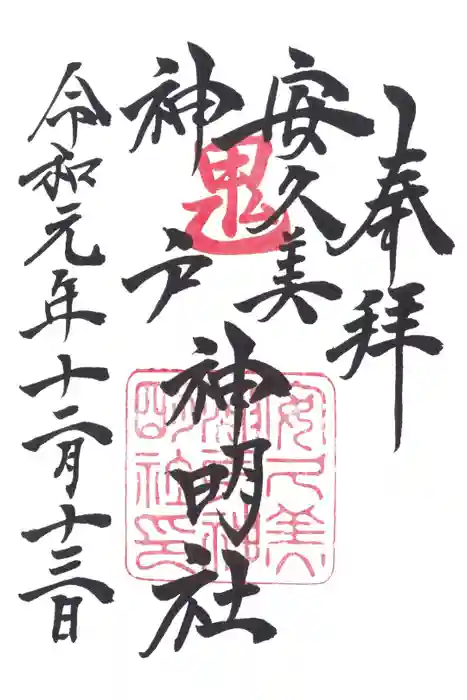 奉拝
安久美
神戸
神明社
令和元年十二月十三日
鬼
安久美神戸神明社印